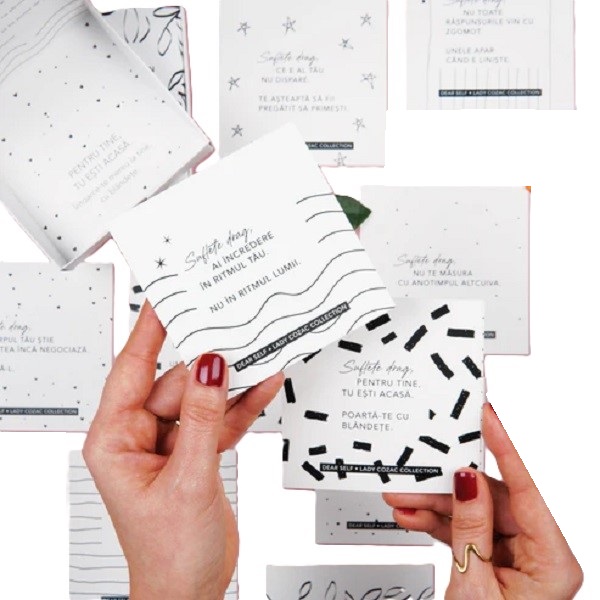 Suflete drag,
CE-E AL TĂU
NU DISPARE.
TE AȘTEAPTĂ SĂ FII
PREGĂTIT SĂ PRIMEȘTI.
DEAR SELF • LADY COZAC COLLECTION
NU TOATE
RĂSPUNSURILE VIN CU
ZGOMOT.
UNELE APAR
CÂND E LINIȘTE.
DEAR SELF • LADY COZAC COLLECTION
PENTRU TINE,
TU EȘTI ACASĂ
cu blândețe
Suflete drag,
AI ÎNCREDERE
ÎN RITMUL TĂU.
NU ÎN RITMUL LUMII.
DEAR SELF • LADY COZAC COLLECTION
Suflete drag,
NU TE MĂSURA
CU ANOTIMPUL ALTCUIVA.
DEAR SELF • LADY COZAC COLLECTION
drag,
PUL TĂU ȘTIE
TEA ÎNCĂ NEGOCIAZĂ.
Suflete drag,
PENTRU TINE,
TU EȘTI ACASĂ.
POARTĂ-TE CU
BLÂNDEȚE.
DEAR SELF • LADY COZAC COLLECTION